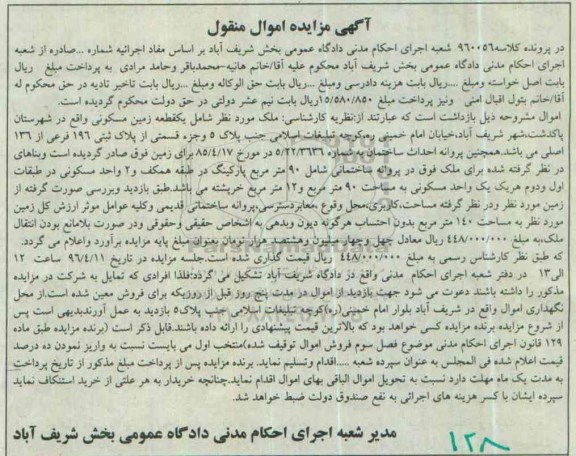 آگهی مزایده اموال منقول
در پرونده کلاسه۹۶۰۰۵۶ شعبه اجرای احکام مدنی دادگاه عمومی بخش شریف آباد بر اساس مفاد اجرائیه شماره ...صادره از شعبه
اجرای احکام مدنی دادگاه عمومی بخش شریف آباد محکوم علیه آقا/خانم هانیه-محمدباقر وحامد مرادی به پرداخت مبلغ ریال
بابت اصل خواسته ومبلغ ....ریال بابت هزینه دادرسی ومبلغ ...ریال بابت حق الوکاله ومبلغ ...ریال بابت تاخیر تادیه در حق محکوم له
آقا/خانم بتول اقبال امنی ونیز پرداخت مبلغ ۱۵/۵۸۰/۸۵۰ریال بابت نیم عشر دولتی در حق دولت محکوم گردیده است.
اموال مشروحه ذیل بازداشت است که عبارتند از:نظریه کارشناسی: ملک مورد نظر شامل یکقطعه زمین مسکونی واقع در شهرستان
پاکدشت،شهر شریف آباد،خیابان امام خمینی ره،کوچه تبلیغات اسلامی جنب پلاک ۵ وجزء قسمتی از پلاک ثبتی ۱۹۶ فرعی از ۱۳۶
اصلی می باشد.همچنین پروانه احداث ساختمان بشماره ۵/۲۲/۳۶۳۶ در مورخ ۸۵/۴/۱۷ برای زمین فوق صادر گردیده است وبناهای
در نظر گرفته شده برای ملک فوق در پروانه ساختمانی شامل ۹۰ متر مربع پارکینگ در طبقه همکف و۲ واحد مسکونی در طبقات
اول ودوم هریک یک واحد مسکونی به مساحت ۹۰ متر مربع و۱۲ متر مربع خرپشته می باشد.طبق بازدید وبررسی صورت گرفته از
زمین مورد نظر ودر نظر گرفته مساحت،کاربری،محل وقوع ،معابردسترسی،پروانه ساختمانی قدیمی وکلیه عوامل موثر ارزش کل زمین
مورد نظر به مساحت ۱۴۰ متر مربع بدون احتساب هرگونه دیون وبدهی به اشخاص حقیقی وحقوقی ودر صورت بلامانع بودن انتقال
ملک،به مبلغ ۴۴۸/۰۰۰/۰۰۰ ریال معادل چهل وچهار میلیون وهشتصد هزار تومان بعنوان مبلغ پایه مزایده برآورد واعلام می گردد.
که طبق نظر کارشناس رسمی به مبلغ ۴۴۸/۰۰۰/۰۰۰ ریال قیمت گذاری شده است.جلسه مزایده در تاریخ ۹۶/۴/۱۱ ساعت ۱۲
الی۱۳ در دفتر شعبه اجرای احکام مدنی واقع در دادگاه شریف آباد تشکیل می گردد:فلذا افرادی که تمایل به شرکت در مزایده
مذکور را داشته باشند دعوت می شود جهت بازدید از اموال در مدت پنج روز قبل از روزیکه برای فروش معین شده است.از محل
نگهداری اموال واقع در شریف آباد بلوار امام خمینی(ره)کوچه تبلیغات اسلامی جنب پلاک۵ بازدید به عمل آورندبدیهی است پس
از شروع مزایده برنده مزایده کسی خواهد بود که بالاترین قیمت پیشنهادی را ارائه داده باشند.قابل ذکر است (برنده مزایده طبق ماده
۱۲۹ قانون اجرای احکام مدنی موضوع فصل سوم فروش اموال توقیف شده)منتخب اول می بایست نسبت به واریز نمودن ده درصد
قیمت اعلام شده فی المجلس به عنوان سپرده شعبه .....اقدام وتسلیم نماید. برنده مزایده پس از پرداخت مبلغ مذکور از تاریخ پرداخت
به مدت یک ماه مهلت دارد نسبت به تحویل اموال الباقی بهای اموال اقدام نماید.چنانچه خریدار به هر علتی از خرید استنکاف نماید
سپرده ایشان با کسر هزینه های اجرائی به نفع صندوق دولت ضبط خواهد شد.
مدیر شعبه اجرای احکام مدنی دادگاه عمومی بخش شریف آباد
۱۲۸